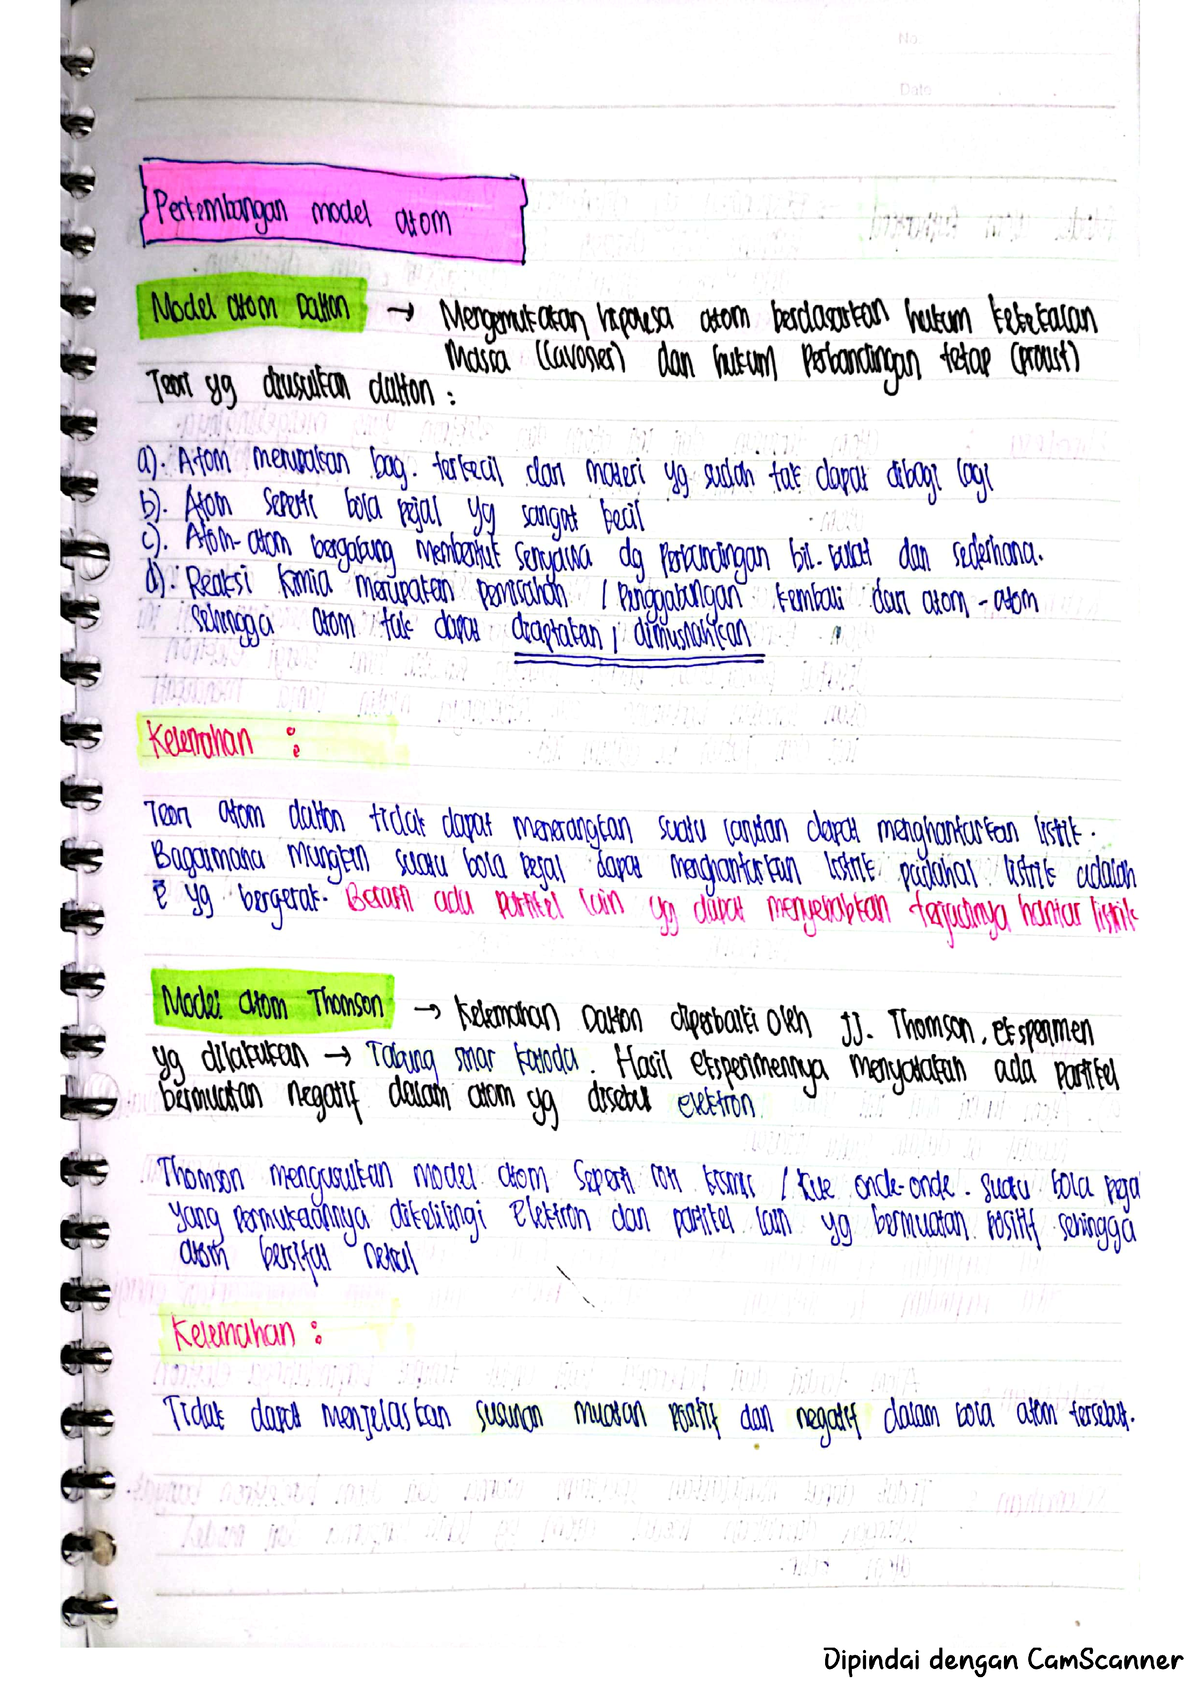 No.
Date
Perkembangan model atom
Model atom Dalton → Mengemukakan hipotesa atom berdasarkan hukum kekekalan
Massa (Lavoiser) dan hukum Perbandingan tetap (proust)
Teori yg diusulkan dalton :
a). Atom merupakan bag. terkecil dari materi yg sudah tak dapat dibagi lagi
b). Atom seperti bola pejal yg sangat kecil
c). Atom-atom bergabung membentuk senyawa dg perbandingan bil. bulat dan sederhana.
d). Reaksi kimia merupakan pemisahan / Penggabungan kembali dari atom-atom
sehingga atom tak dapat diciptakan / dimusnahkan
Kelemahan :
Teori atom dalton tidak dapat menerangkan suatu larutan dapat menghantarkan listrik.
Bagaimana mungkin suatu bola pejal dapat menghantarkan listrik padahal listrik adalah
e yg bergerak. Berarti ada partikel lain yg dapat menyebabkan terjadinya hantar listrik
Model atom Thomson → Kelemahan Dalton diperbaiki oleh JJ. Thomson, eksperimen
yg dilakukan → Tabung sinar katoda. Hasil eksperimennya menyatakan ada partikel
bermuatan negatif dalam atom yg disebut elektron
Thomson mengusulkan model atom seperti roti kismis / kue onde-onde. suatu bola peja
yang permukaannya dikelilingi elektron dan partikel lain yg bermuatan positif sehingga
atom bersifat netral
Kelemahan :
Tidak dapat menjelaskan susunan muatan positif dan negatif dalam bola atom tersebut.
Dipindai dengan CamScanner